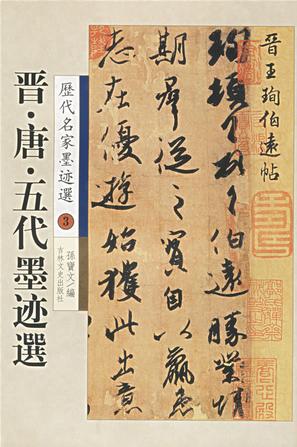 晋·唐·五代墨迹選
歷代名家墨迹選
3
孫寶文／編
吉林文史出版社
晋王珣伯遠帖
珣頓首頓首伯遠勝業情
期群從之寶自以羸患
志在優遊始獲此出意